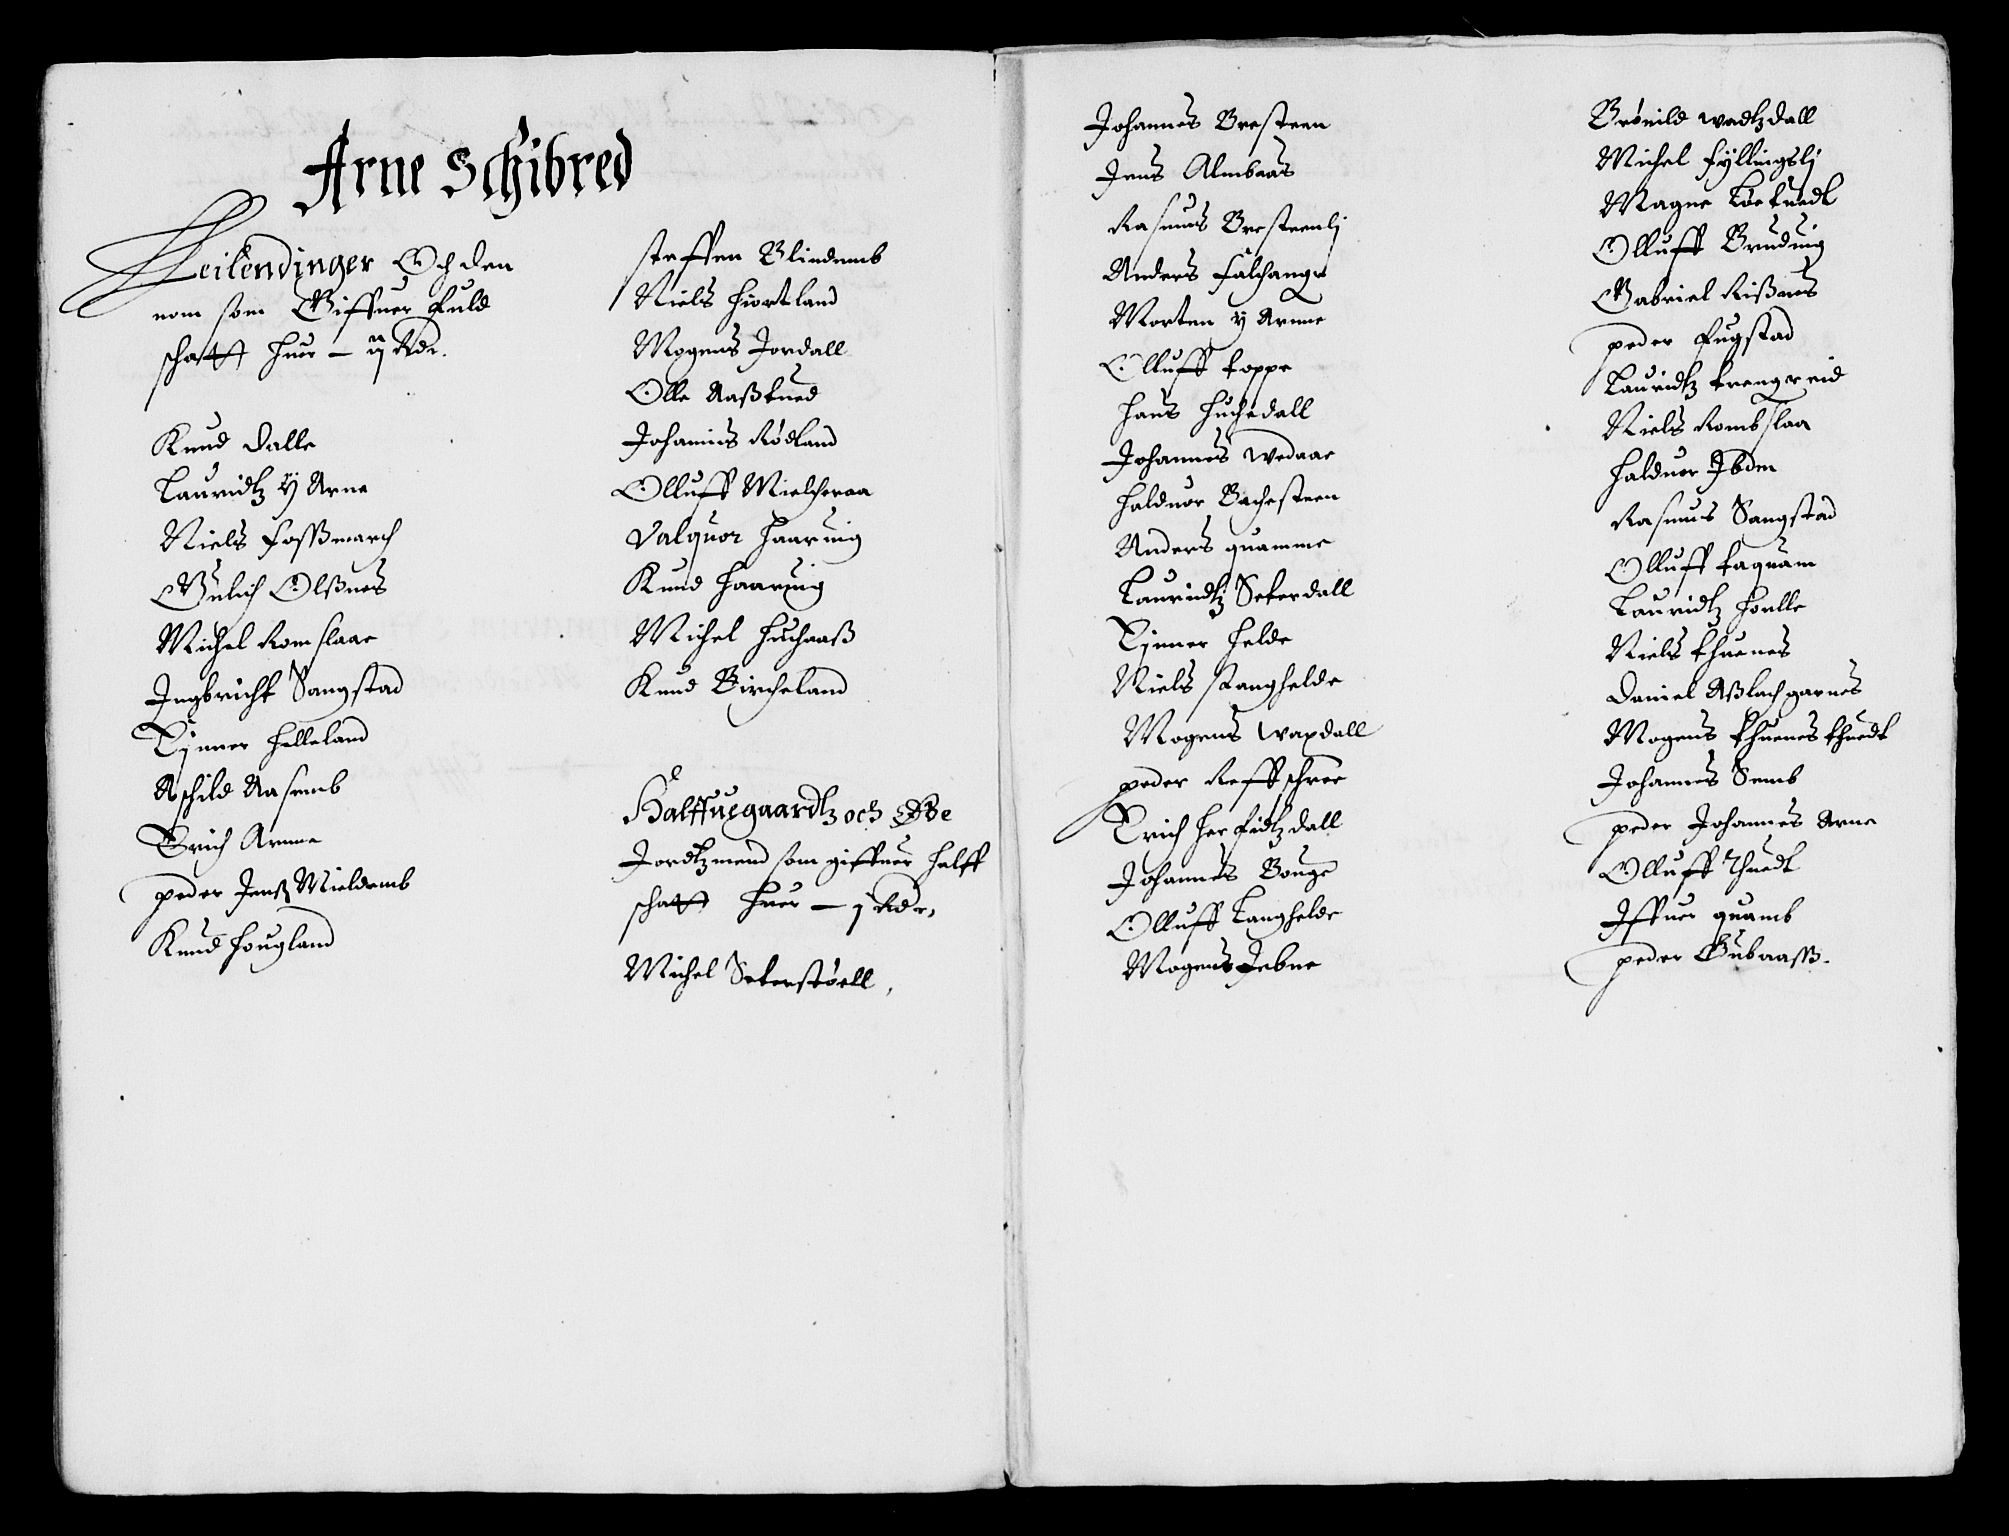 Arne Schibred
Leilendinger Och den
nom som Giffuer Fuld
schatt huer - ij Rdr.
Knud Dalle
Lauridtz y Arne
Niels Fosßmarch
Gulich Olßnes
Michel Romslaae
Ingbricht Sangstad
Einer Helleland
Aschild Aasemb
Erich Arnne
peder Jenß Mieldemb
Knud Hougland
steffen Blindemb
Niels Hiortland
Mogens Jordall
Olle Aaßtued
Johannis Rødland
Olluff Mielcheraa
Valquor Haaruig
Knud Haaruig
Michel Huchaaß
Knud Bircheland
Halffuegaardtz och Øde
Jordtzmend som giffuer halff
schatt huer - j Rdr.
Michel Seterstøell,
Johannes Bresteen
Jens Almbaas
Rasmus Bresteenlj
Anders Falchange
Morten y Arnne
Olluff toppe
Hans Huchedall
Johannes Wedaae
Halduor Bachesteen
Anders quamme
Lauridtz Seterdall
Einer Helde
Niels stanghelde
Mogens Waxdall
peder Reffschree
Erich Herfidtzdall
Johannes Bouge
Olluff Langhelde
Mogens Jebne
Brønild Wadtzdall
Michel Fyllingslj
Magne Løetuedt
Olluff Bruduig
Gabriel Rißnes
peder Fugstad
Lauridtz trengereid
Niels Rombslaa
Halduor Ibdm
Rasmus Sangstad
Olluff taquam
Lauridtz Horlle
Niels thuenes
Daniel Aßlachgarnes
Mogens thuenes thuedt
Johannes Semb
peder Johannes Arne
Olluff Thuedt
Iffuer quamb
peder Gubaaß.